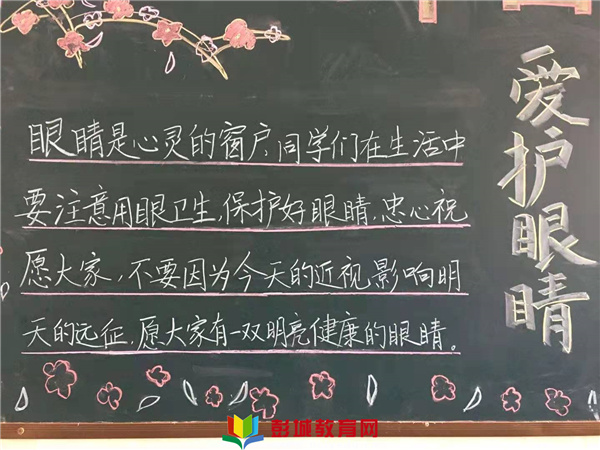 爱护眼睛
眼睛是心灵的窗户,同学们在生活中
要注意用眼卫生,保护好眼睛,忠心祝
愿大家,不要因为今天的近视影响明
天的远征,愿大家有一双明亮健康的眼睛。
彭城教育网